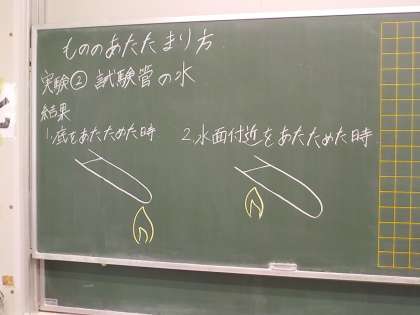 もののあたたまり方
実験② 試験管の水
結果
1.底をあたためた時
2.水面付近をあたためた時